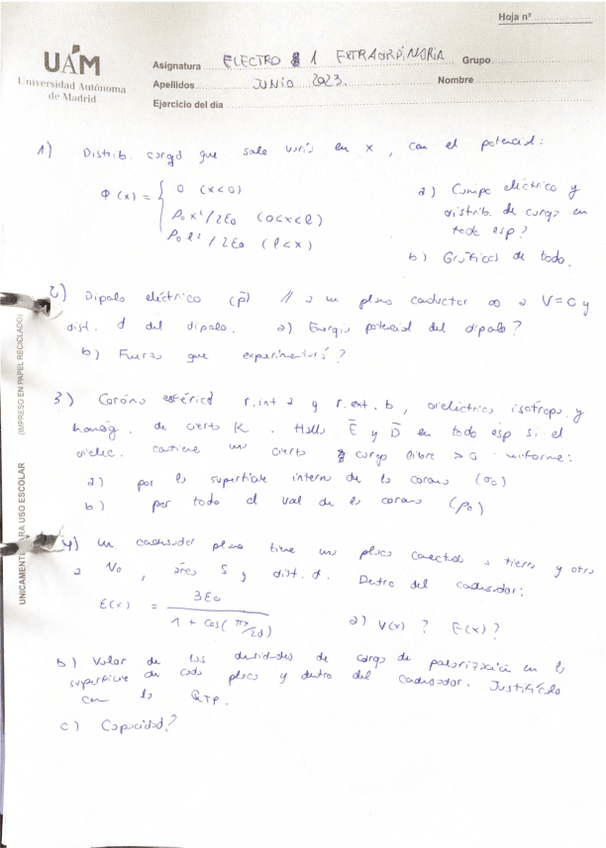 Hoja nº
UAM
Universidad Autónoma
de Madrid
Asignatura ELECTRO 1 EXTRAORDINARIA Grupo
Apellidos JUNIO 2023. Nombre
Ejercicio del día
1) Distrib. carga que solo varía en x, con el potencial:
Φ(x) = { 0 (x<0)
ρ₀x²/2ε₀ (0<x<l)
ρ₀l²/2ε₀ (l<x)
a) Campo eléctrico y
distrib. de carga en
todo esp?
b) Gráficas de todo.
2) Dipolo eléctrico (p̄) // a un plano conductor ∞ a V=0 y
dist. d del dipolo. a) Energía potencial del dipolo?
b) Fuerza que experimentará?
3) Corona esférica r.int a y r.ext. b, dieléctrico isótropo y
homóg. de cierto K. Halla E̅ y D̅ en todo esp si el
dieléc. contiene un cierto carga libre >0 uniforme:
a) por la superficie interna de la corona (σ₀)
b) por todo el vol de la corona (ρ₀)
4) Un condensador plano tiene un placa conectada a tierra y otra
a V₀, área S y dist. d. Dentro del condensador:
ε(x) = 3ε₀ / 1 + cos(πx/2d)
a) V(x)? E(x)?
b) Valor de las densidades de carga de polarización en la
superficie de cada placa y dentro del condensador. Justifícalo
con la
c) Capacidad?
UNICAMENTE PARA USO ESCOLAR (IMPRESO EN PAPEL RECICLADO)